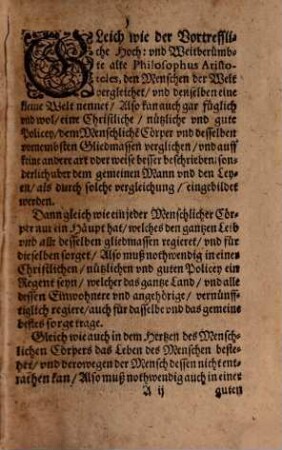 GLeich wie der Vortreffli-
che Hoch: vnd Weitberümb-
te alte Philosophus Aristo-
teles, den Menschen der Welt
vergleichet / vnd denselben eine
kleine Welt nennet / Also kan auch gar füglich
vnd wol / eine Christliche / nützliche vnd gute
Policey / dem Menschlichē Cörper vnd desselben
vornembsten Gliedmassen verglichen / vnd auff
keine andere art oder weise besser beschrieben: son-
derlich aber dem gemeinen Mann vnd den Ley-
en / als durch solche vergleichung / eingebildet
werden.
Dann gleich wie ein jeder Menschlicher Cör-
per nur ein Häupt hat / welches den gantzen Leib
vnd alle desselben gliedmassen regieret / vnd für
dieselben sorget / Also muß nothwendig in einer
Christlichen / nützlichen vnd guten Policey ein
Regent seyn / welcher das gantze Land / vnd alle
dessen Einwohnere vnd angehörige / vernünff-
tiglich regiere / auch für dasselbe vnd das gemeine
bestes sorge trage.
Gleich wie auch in dem Hertzen des Mensch-
lichen Cörpers das Leben des Menschen beste-
het / vnd derowegen der Mensch dessen nicht ent-
rathen kan / Also muß nothwendig auch in einer
A ij guten